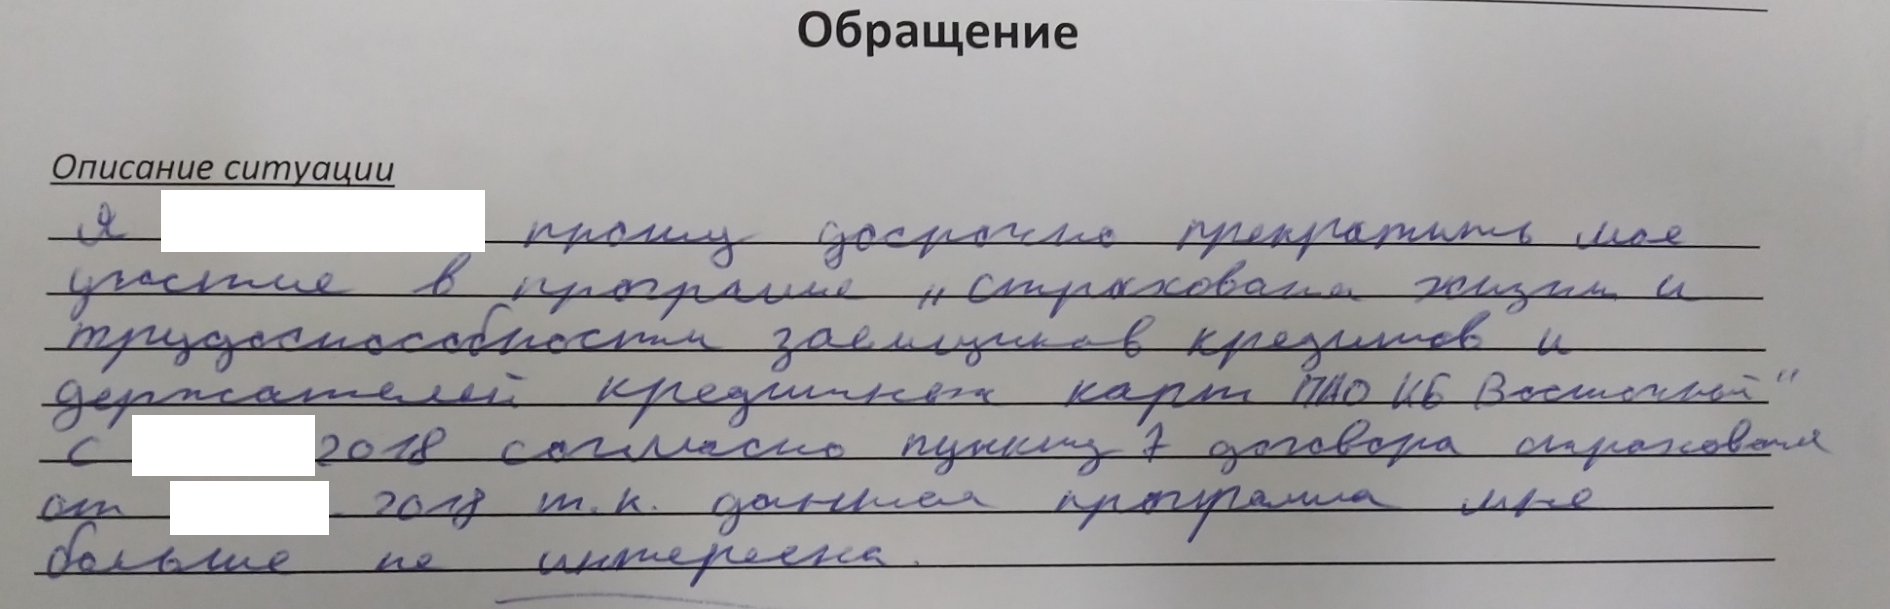 Обращение
Описание ситуации
Я прошу досрочно прекратить мое
участие в программе „Страхование жизни и
трудоспособности заемщиков кредитов и
держателей кредитных карт ПАО КБ Восточный"
с 2018 согласно пункту 7 договора страхования
от 2018 т.к. данная программа мне
больше не интересна.